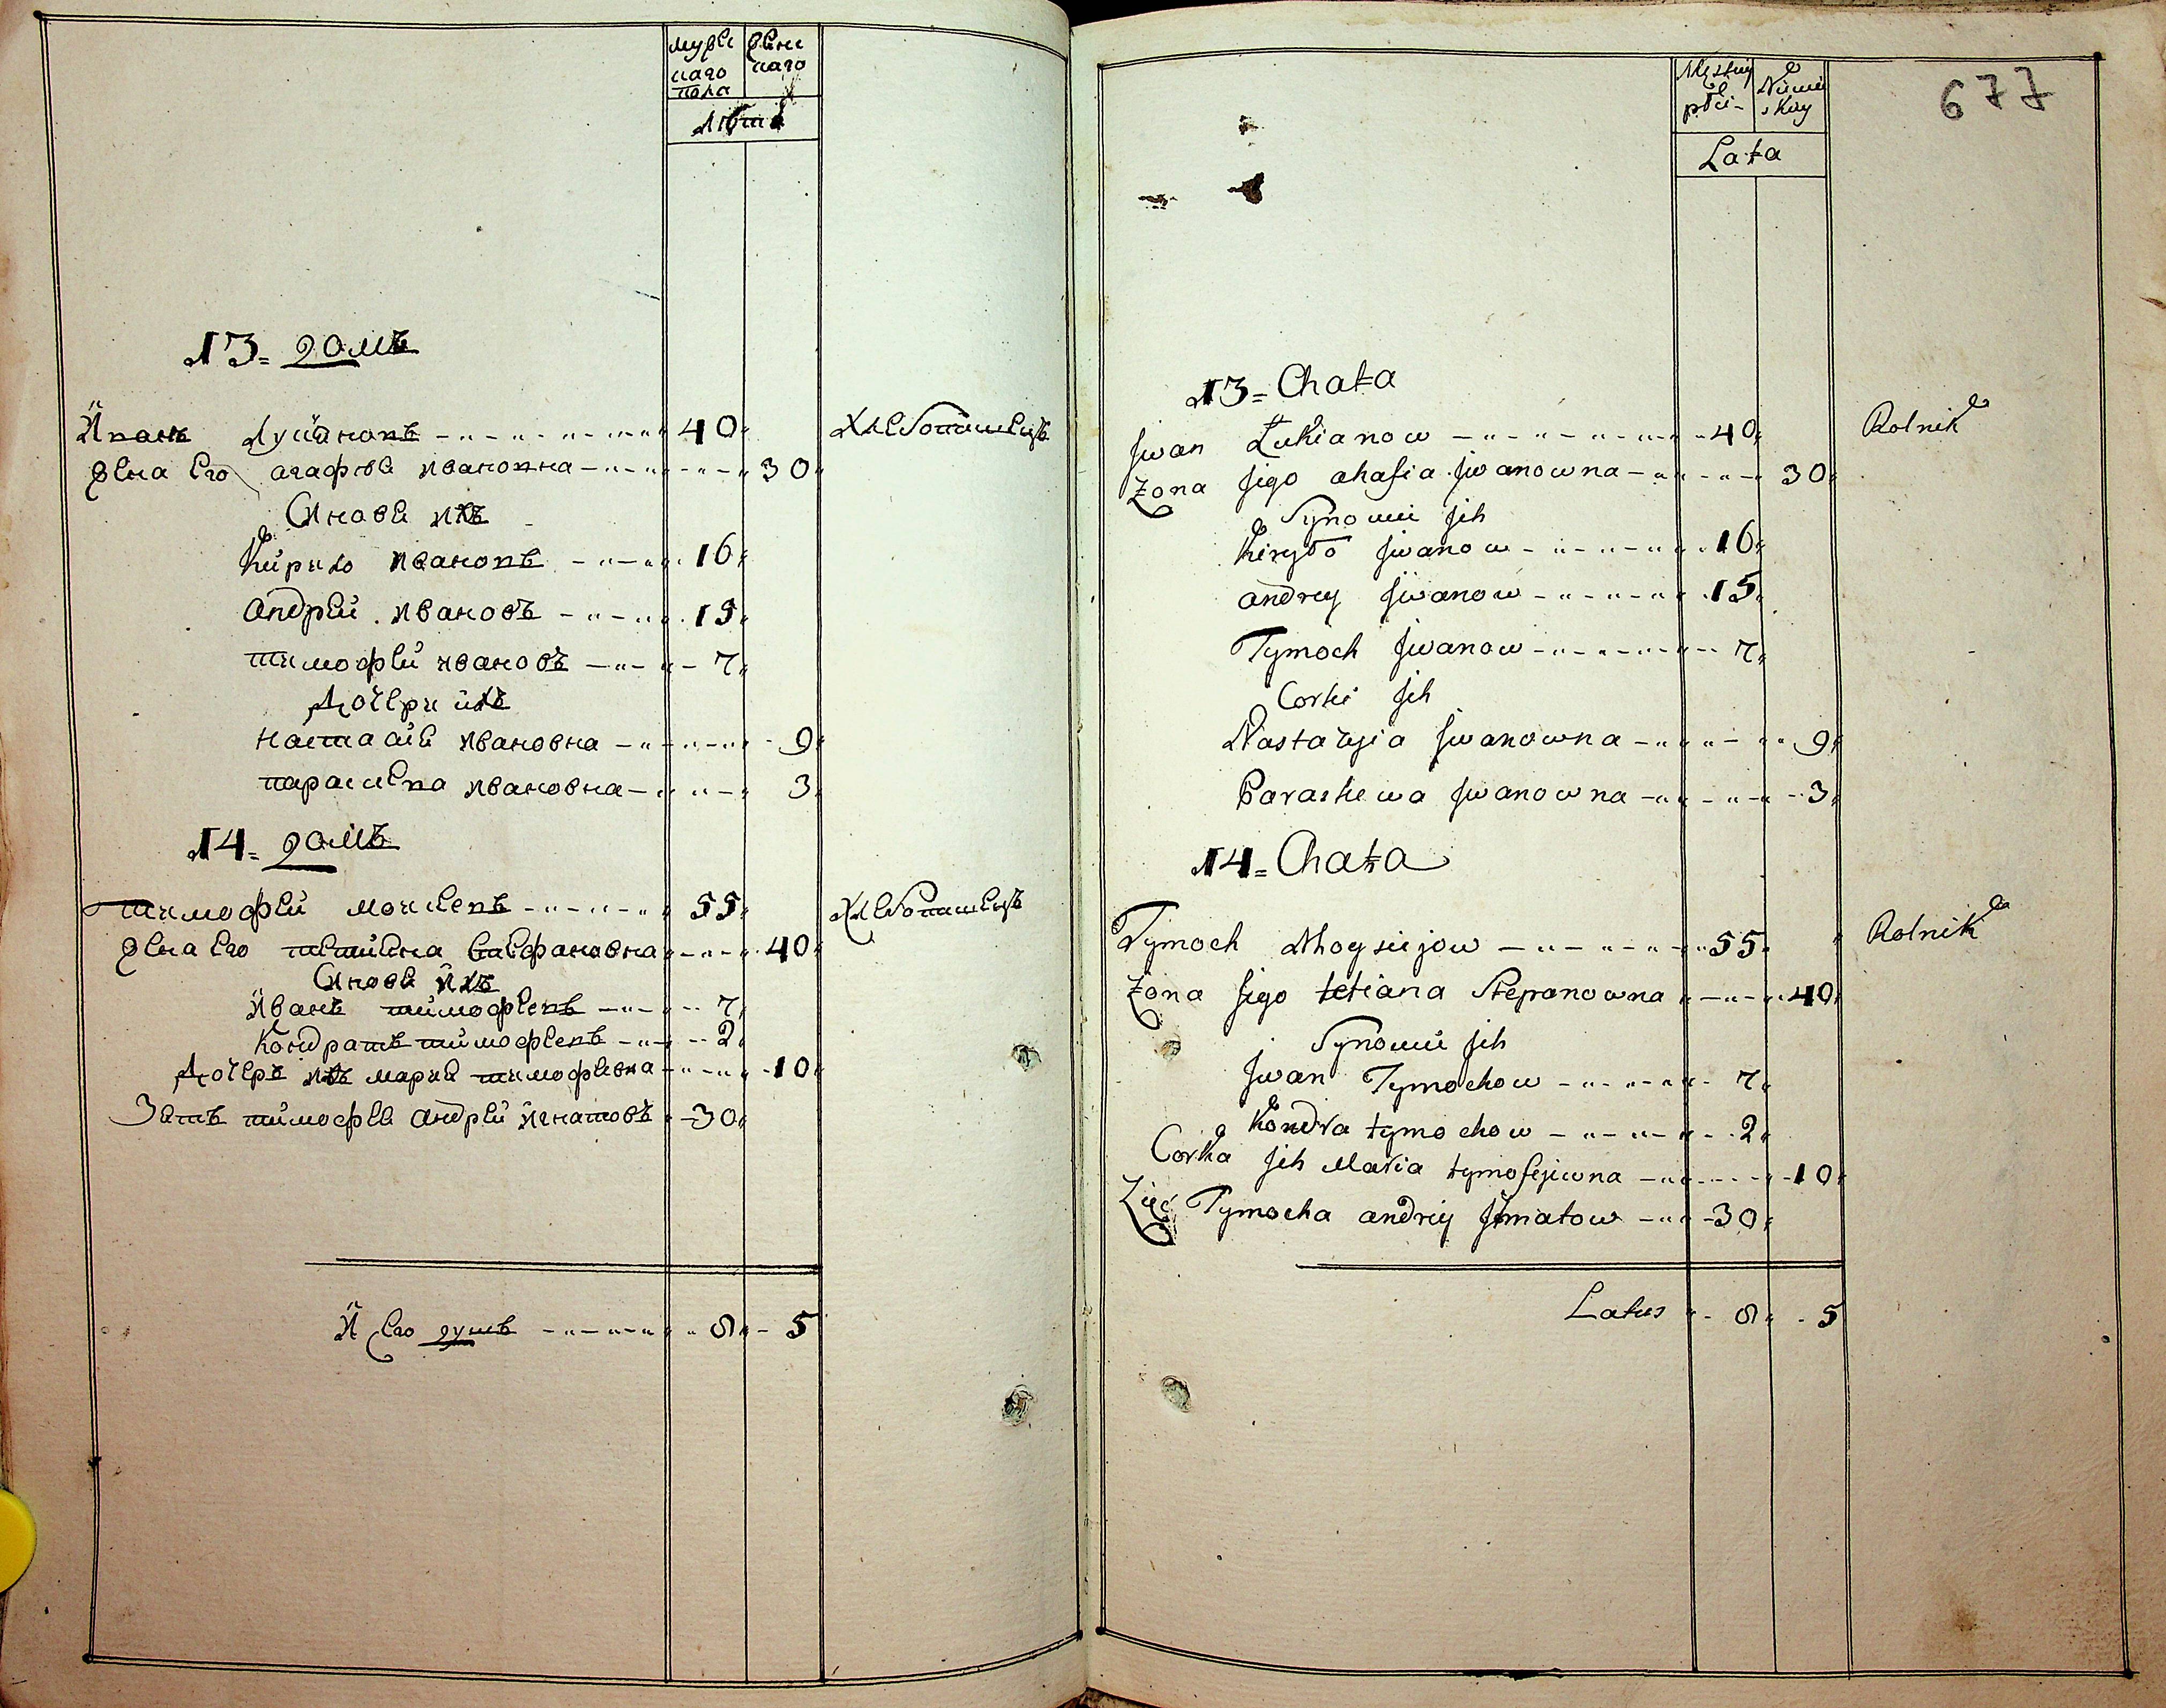 мужескаго пола женскаго
Лѣта
13= домъ
Иванъ Лукіановъ 40 Хлебопашецъ
Жена Его агафія ивановна 30
Синове ихъ
Кирило ивановъ 16
Андрей ивановъ 15
тимофей ивановъ 7
Дочери ихъ
настасія ивановна 9
параскева ивановна 3
14= домъ
тимофей моисеевъ 55 Хлебопашецъ
Жена Его тетияна Стефановна 40
Синове ихъ
Иванъ тимофеевъ 7
Кондратъ тимофеевъ 2
Дочерь ихъ мария тимофеевна 10
Зять тимофея Андрей игнатовъ 30
И Его душъ 8 5
677
Męskiy płci Niewieskiy
Lata
13= Chata
Jwan Łukianow 40 Rolnik
Zona Jigo ahafia Jwanowna 30
Synowie Jih
Kiryło Jwanow 16
andrey Jwanow 15
Tymoch Jwanow 7
Corki Jih
Nastazyia Jwanowna 9
Paraskewa Jwanowna 3
14= Chata
Tymoch Moysiejow 55 Rolnik
Zona Jigo tetiana Stepanowna 40
Synowie Jih
Jwan Tymochow 7
Kondra tymochow 2
Corka Jih Maria tymofejiwna 10
Zięć Tymocha andriy Jhnatow 30
Latus 8 5